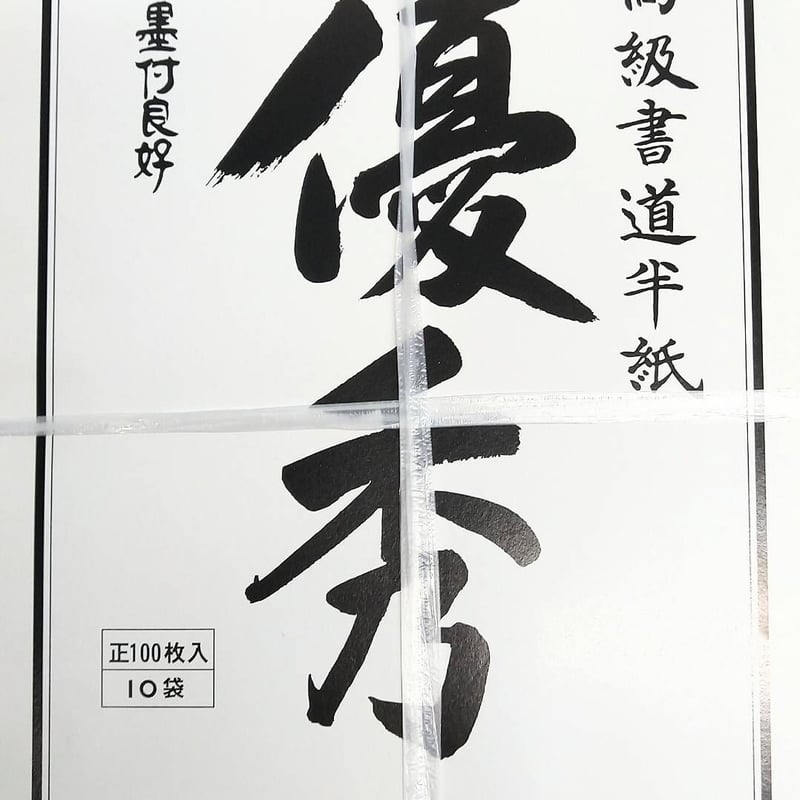 高級書道半紙
優秀
墨付良好
正100枚入
10袋